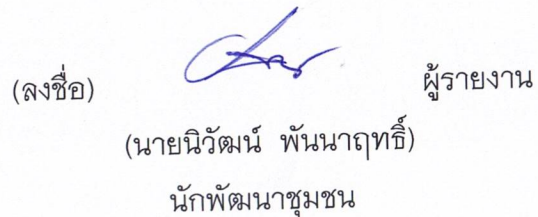 (ลงชื่อ) ผู้รายงาน
(นายนิวัฒน์ พันนาฤทธิ์)
นักพัฒนาชุมชน